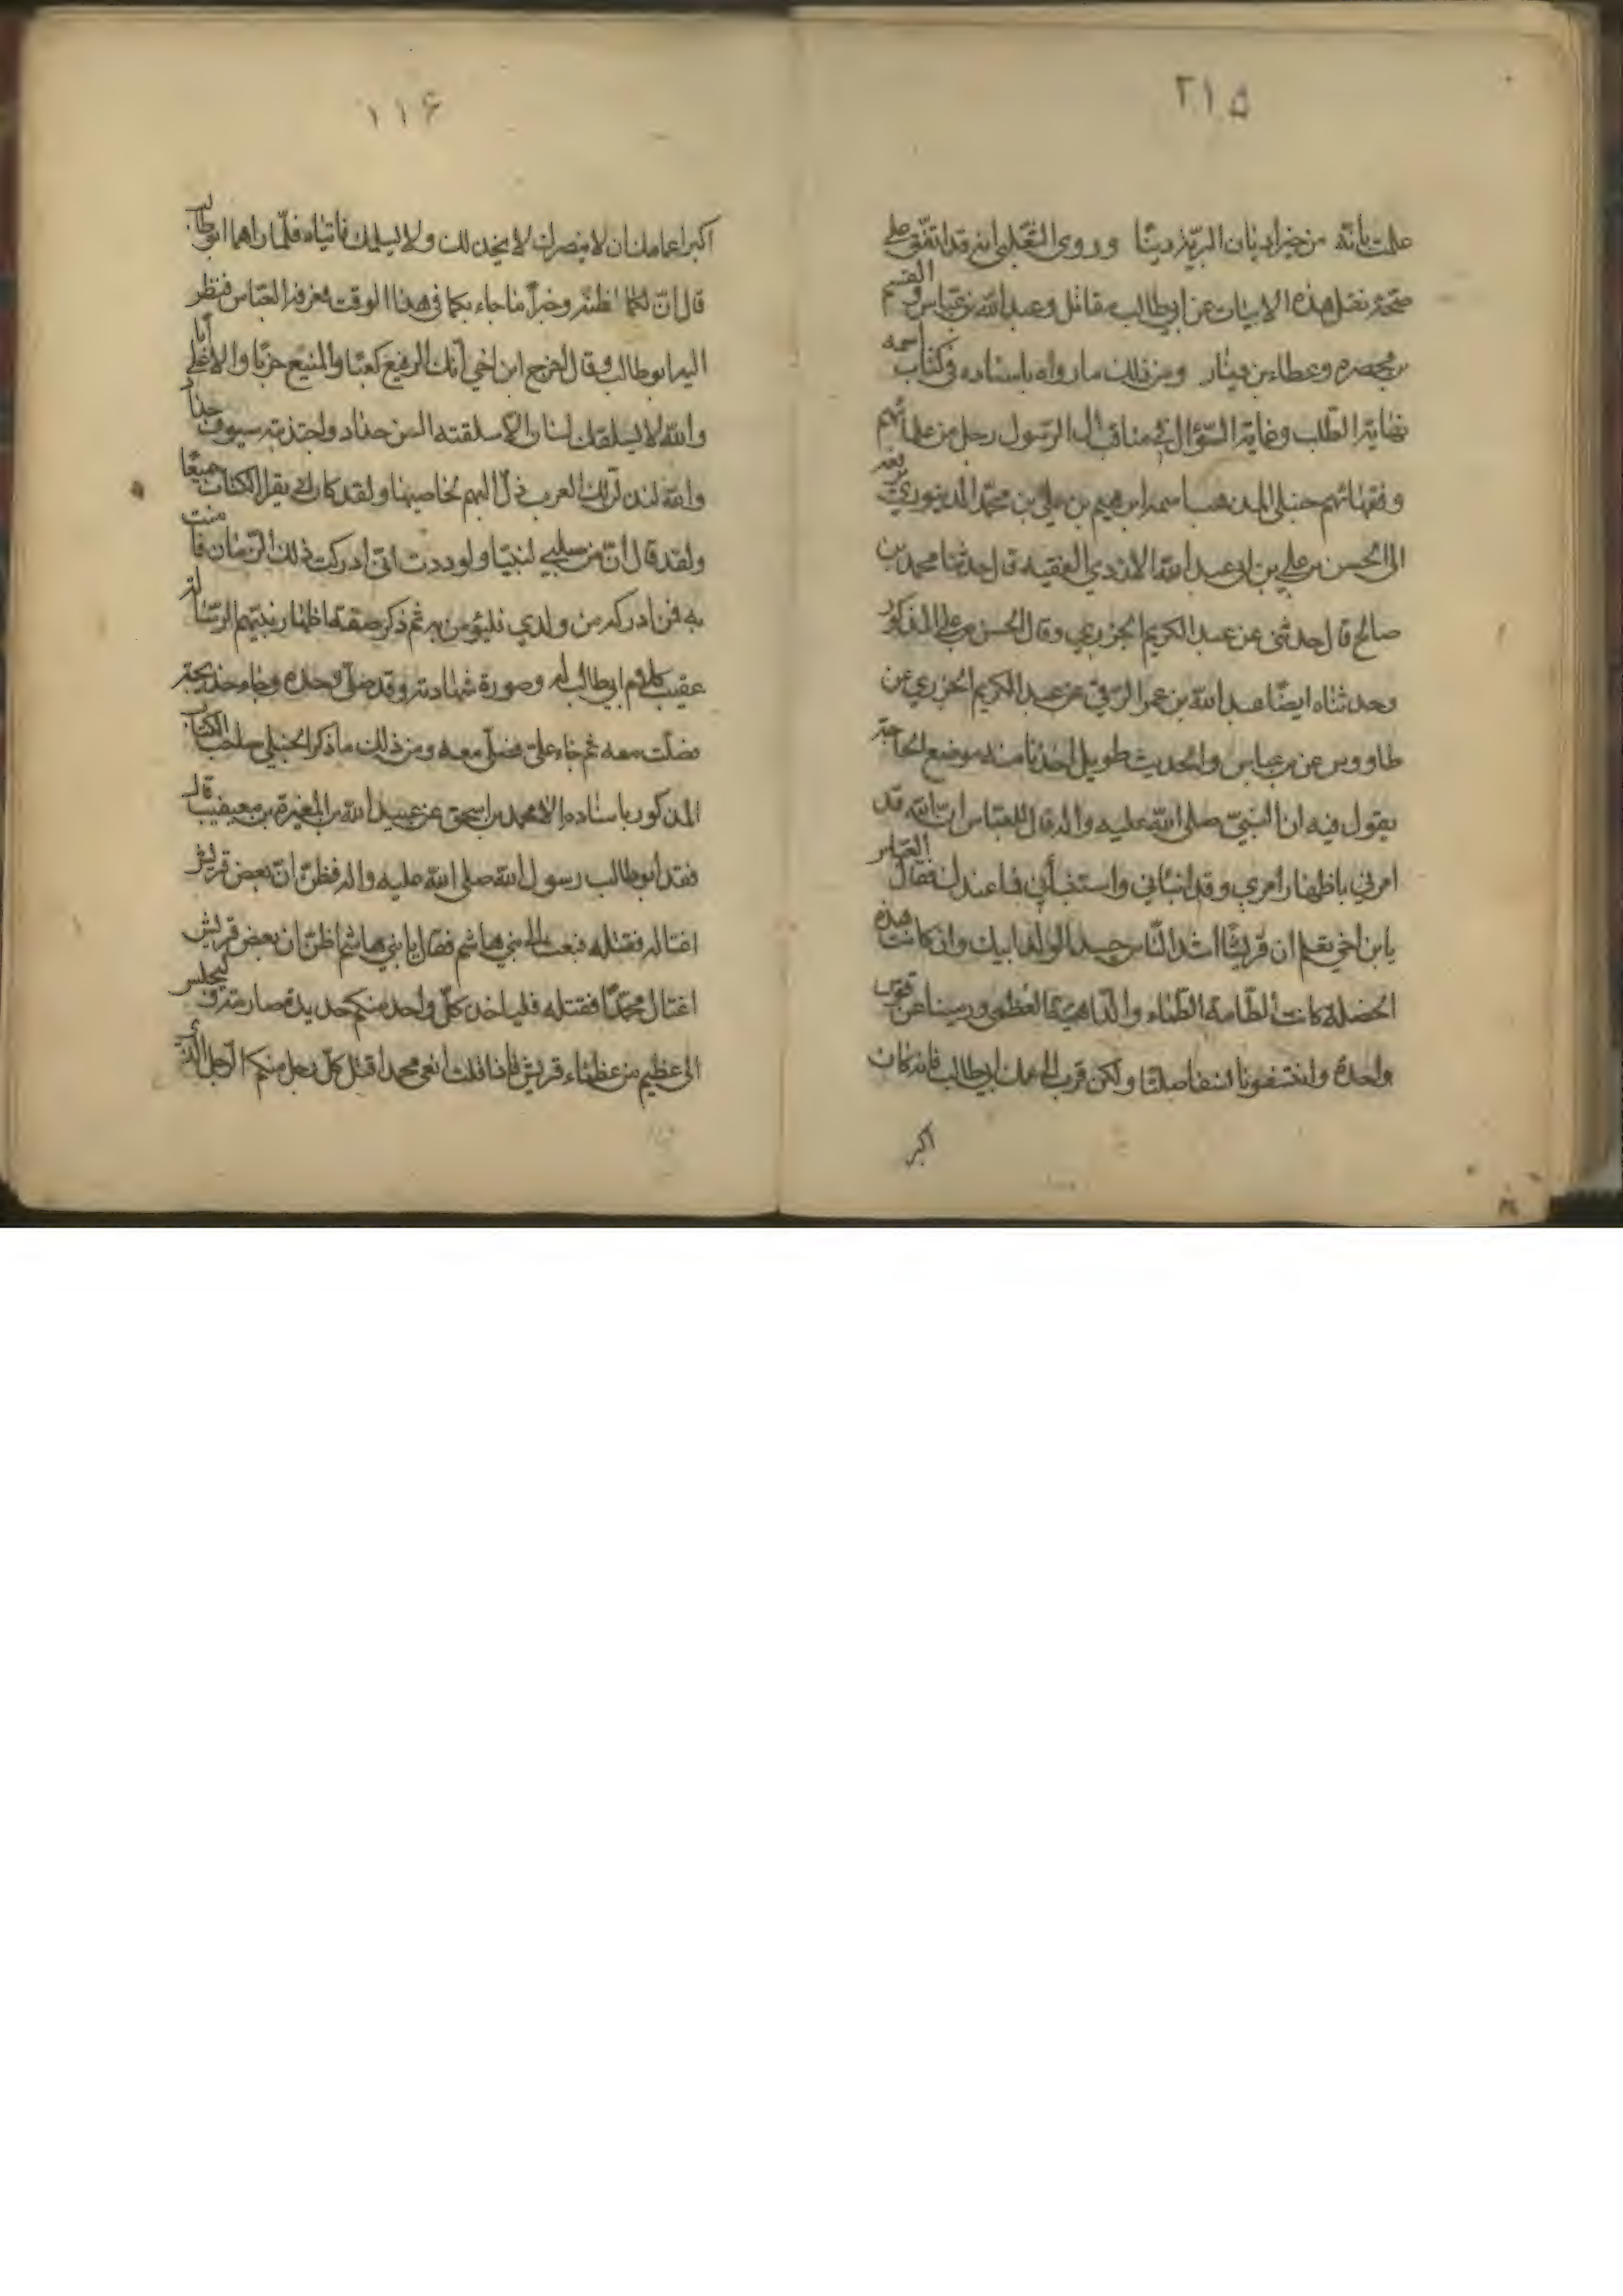 ٢١۵
علمت بانّه من خیر ادیان البریّة دینًا وروی الثعلبی انه قد اتفق علی
صحّة نقل هذه الابیات عن ابی طالب مقاتل وعبد الله بن عباس والقسم
بن محیصره وعطاء بن دینار ومن ذلک ما رواه باسناده فی کتاب اسمه
نهایة الطّلب وغایة السّؤال فی مناقب آل الرّسول رجل من علمائهم
وفقهائهم حنبلی المذهب اسمه ابرهیم بن علی بن محمّد الدینوریّ یرفعه
الی الحسن بن علی بن ابی عبد الله الازدی الفقیه قال حدثنا محمد بن
صالح قال حدثنی عن عبد الکریم الجزری وقال الحسن بن علی المذکور
وحدثناه ایضًا عبد الله بن عمر الرّقی عن عبد الکریم الجزری عن
طاووس عن بن عباس والحدیث طویل اخذنا منه موضع الحاجة
یقول فیه ان النبیّ صلی الله علیه واله قال للعبّاس انّ الله قد
امرنی باظهار امری وقد انبأنی واستنبأنی فما عندک فقال العباس
یابن اخی تعلم ان قریشًا اشد النّاس حسدا لولد ابیک وان کانت هذه
الخصلة کانت الطّامة الطّماء والدّاهیة العظمی ورمینا عن قوس
واحدة وانتسفونا نسفا صلتا ولکن قرب الی عمک ابی طالب فانه کان
اکبر
١١۶
اکبر اعمامک ان لا ینصرک لا یخذلک ولا یسلمک فاتیاه فلمّا راهما ابوطالب
قال انّ لکما لظنّة وخبراً ما جاء بکما فی هذا الوقت فعرفه العبّاس فنظر
الیه ابوطالب وقال اخرج ابن اخی انّک الرفیع کعبًا والمنیع حزبًا والاعلی أبا
والله لا یسلقک لسان الا سلقته السن حداد واجتذبته سیوف حداد
والله لتذلّنّ لک العرب ذلّ البهم لحاضنها ولقد کان ابی یقرأ الکتاب جمیعًا
ولقد قال انّ من صلبی لنبیّا ولوددت انّی ادرکت ذلک الزّمان فآمنت
به فمن ادرکه من ولدی فلیؤمن به ثم ذکر صفة اظهار نبیّهم الرّسالة
عقیب کلام ابی طالب له وصورة شهادته وقد صلّی وحده وجاء خدیجة
فصلّت معه ثم جاء علیّ فصلّ معه ومن ذلک ما ذکر الحنبلی صاحب الکتاب
المذکور باسناده الی محمد بن اسحق عن عبید الله بن المغیرة بن معیقیب قال
فقد ابوطالب رسول الله صلی الله علیه واله فظنّ انّ بعض قریش
اغتاله فقتله فبعث الی بنی هاشم فقال یا بنی هاشم اظنّ ان بعض قریش
اغتال محمّدًا فقتله فلیاخذ کلّ واحد منکم حدیدة صارمة ولیجلس
الی عظیم من عظماء قریش فاذا قلت ابغی محمدا قتل کلّ رجل منکم الرّجل الّذی